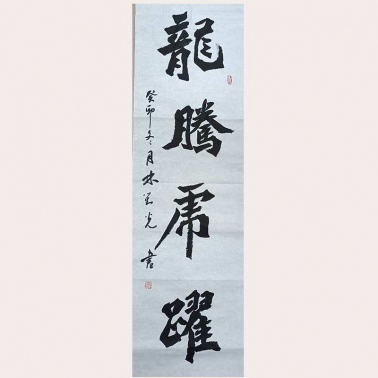 龍騰虎躍
癸卯冬月林 光書